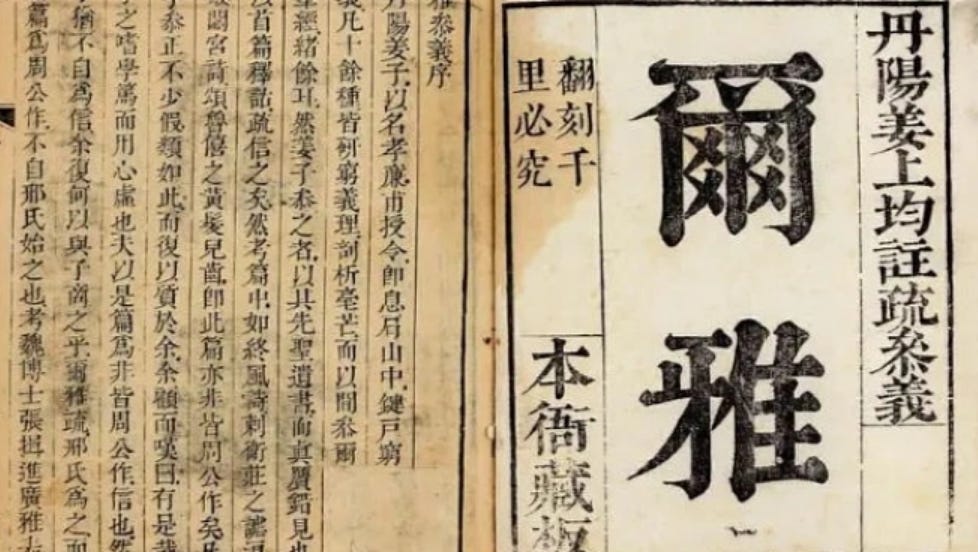 丹陽姜上均註疏叅義
爾雅
翻刻千
里必究
本衙藏板
雅叅義序
丹陽姜子以名孝廉甫授令卽息肩山中鍵戸窮
凡十餘種皆硏窮義理剖析毫芒而以間叅爾
羣經緒餘耳然姜子叅之者以其先聖遺書而真贋錯見也
以首篇釋詁疏信之矣然考篇中如終風詩刺衛莊之謔浪
閟宮詩頌魯僖之黃髮兒齒卽此篇亦非皆周公作矣
子叅正不少假類如此而復以質於余余顧而嘆曰有是哉
子之嗜學篤而用心虛也夫以是篇爲非皆周公作信也然
猶不自爲信余復何以與子商之乎爾雅疏邢氏爲之而
篇爲周公作不自邢氏始之也考魏博士張揖進廣雅